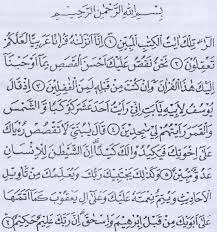 بِسْمِ اللَّهِ الرَّحْمَٰنِ الرَّحِيمِ
الٓر ۚ تِلْكَ ءَايَٰتُ الْكِتَٰبِ الْمُبِينِ ۝١ إِنَّآ أَنزَلْنَٰهُ قُرْءَٰنًا عَرَبِيًّا لَّعَلَّكُمْ
تَعْقِلُونَ ۝٢ نَحْنُ نَقُصُّ عَلَيْكَ أَحْسَنَ الْقَصَصِ بِمَآ أَوْحَيْنَآ
إِلَيْكَ هَٰذَا الْقُرْءَانَ وَإِن كُنتَ مِن قَبْلِهِ لَمِنَ الْغَٰفِلِينَ ۝٣ إِذْ قَالَ
يُوسُفُ لِأَبِيهِ يَٰٓأَبَتِ إِنِّي رَأَيْتُ أَحَدَ عَشَرَ كَوْكَبًا وَالشَّمْسَ
وَالْقَمَرَ رَأَيْتُهُمْ لِي سَٰجِدِينَ ۝٤ قَالَ يَٰبُنَيَّ لَا تَقْصُصْ رُءْيَاكَ
عَلَىٰٓ إِخْوَتِكَ فَيَكِيدُوا لَكَ كَيْدًا ۖ إِنَّ الشَّيْطَٰنَ لِلْإِنسَٰنِ
عَدُوٌّ مُّبِينٌ ۝٥ وَكَذَٰلِكَ يَجْتَبِيكَ رَبُّكَ وَيُعَلِّمُكَ مِن تَأْوِيلِ
الْأَحَادِيثِ وَيُتِمُّ نِعْمَتَهُ عَلَيْكَ وَعَلَىٰٓ ءَالِ يَعْقُوبَ كَمَآ أَتَمَّهَا
عَلَىٰٓ أَبَوَيْكَ مِن قَبْلُ إِبْرَٰهِيمَ وَإِسْحَٰقَ ۚ إِنَّ رَبَّكَ عَلِيمٌ حَكِيمٌ ۝٦